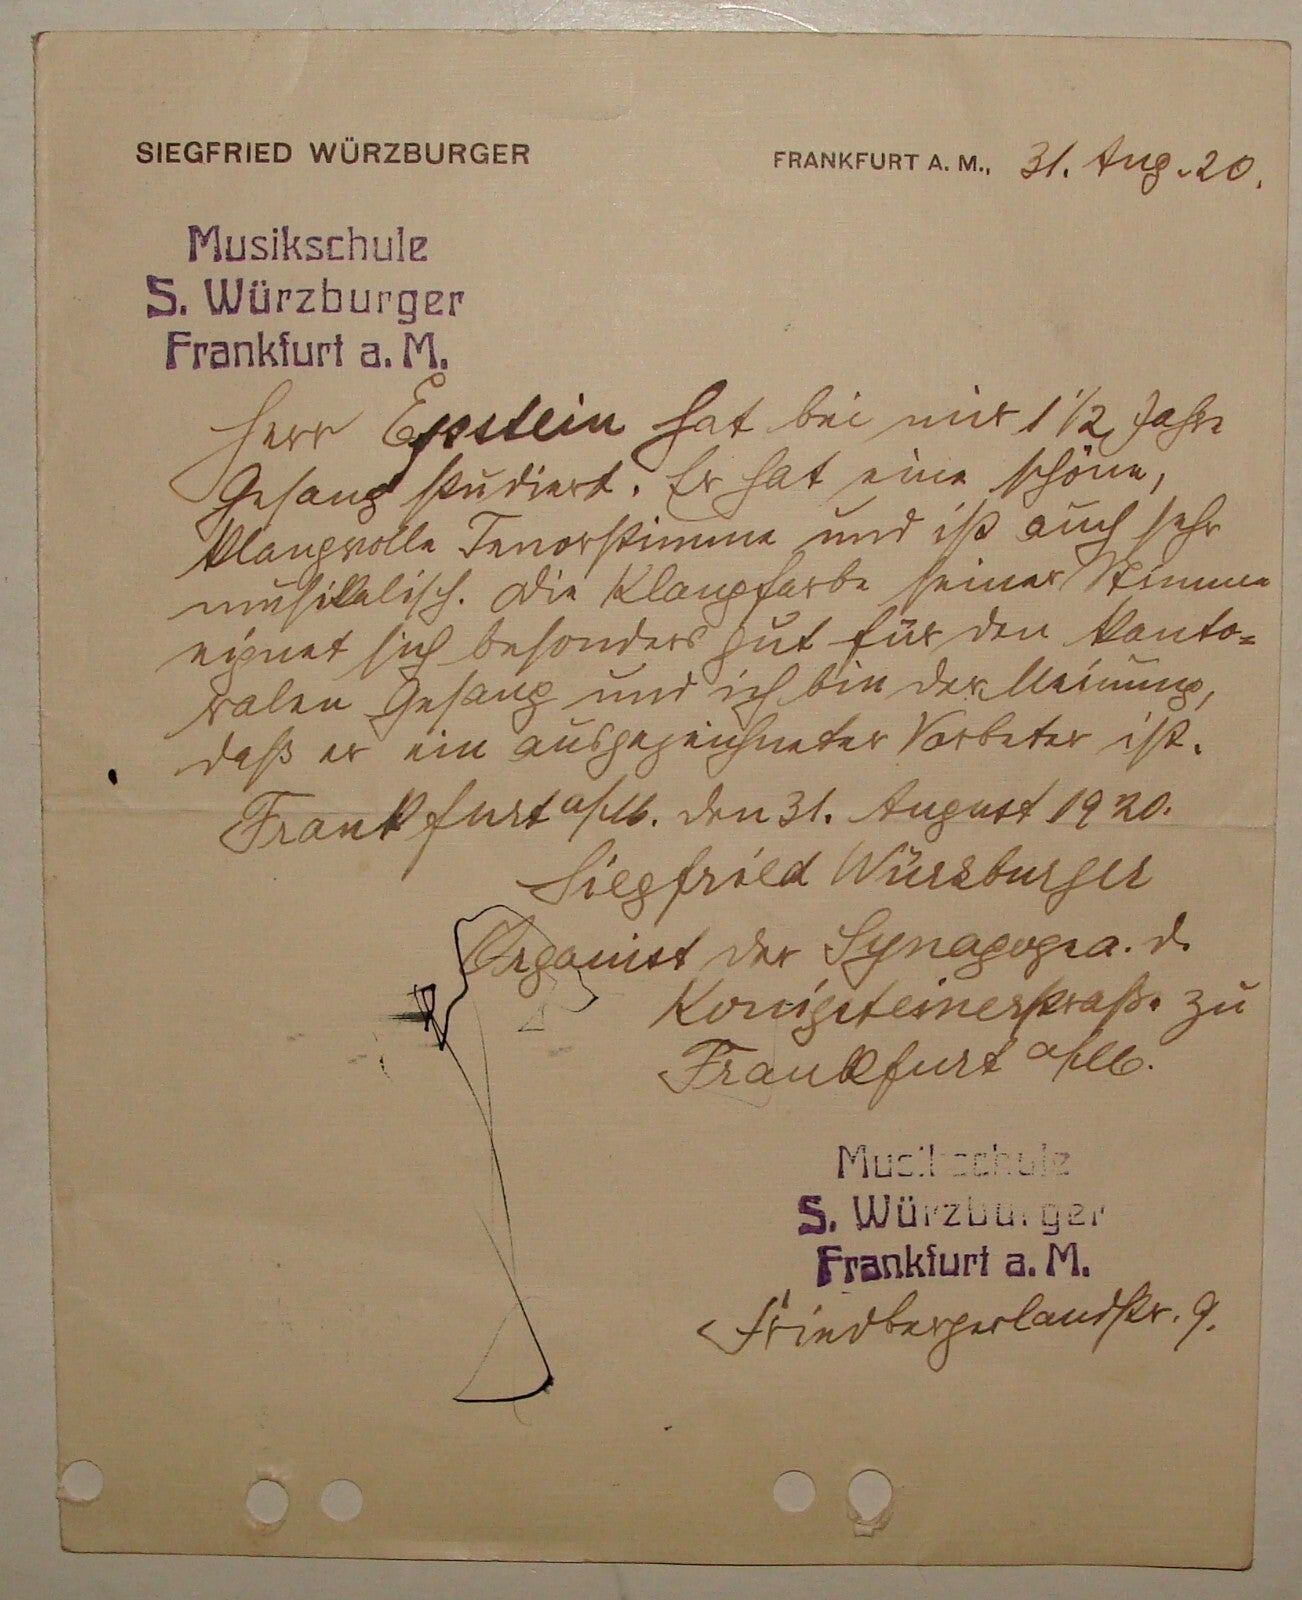 SIEGFRIED WÜRZBURGER
FRANKFURT A. M., 31. Aug. 20.
Musikschule
S. Würzburger
Frankfurt a. M.
Herr Epstein hat bei mir 1 1/2 Jahre
Gesang studiert. Er hat eine schöne,
klangvolle Tenorstimme und ist auch sehr
musikalisch. Die Klangfarbe seiner Stimme
eignet sich besonders gut für den kanto=
ralen Gesang und ich bin der Meinung,
daß er ein ausgezeichneter Vorbeter ist.
Frankfurt a/M. den 31. August 1920.
Siegfried Würzburger
Organist der Synagoge a. d.
Königsteinerstraße zu
Frankfurt a/M.
Musikschule
S. Würzburger
Frankfurt a. M.
Friedbergerlandstr. 9.